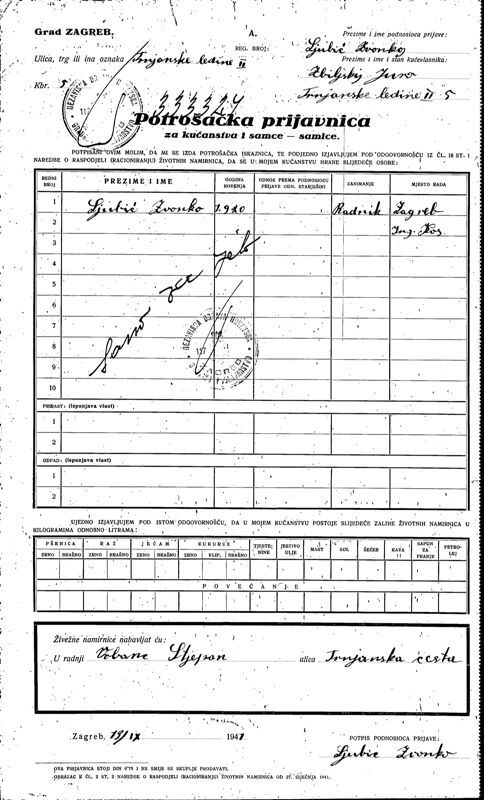 Grad ZAGREB.
A.
Prezime i ime podnosioca prijave:
REG. BROJ:
Ljubić Zvonko
Ulica, trg ili ina oznaka Trnjanske ledine II
Prezime i ime i stan kućevlasnika:
Kbr. 5
Juro
Trnjanske ledine II 5
Potrošačka prijavnica
za kućanstva i samce — samice.
POTPISANI OVIM MOLIM, DA MI SE IZDA POTROŠAČKA ISKAZNICA, TE PODJEDNO IZJAVLJUJEM POD ODGOVORNOŠĆU IZ ČL. 18 ST. 1
NAREDBE O RASPODJELI (RACIONIRANJU) ŽIVOTNIH NAMIRNICA, DA SE U MOJEM KUĆANSTVU HRANE SLIJEDEĆE OSOBE:
REDNI BROJ
PREZIME I IME
GODINA ROĐENJA
ODNOS PREMA PODNOSIOCU PRIJAVE ODN. STARJEŠINI
ZANIMANJE
MJESTO RADA
1 Ljubić Zvonko 1920 Radnik Zagreb
2 Ing.
3
4
5
6
7
8
9
10
Samo za
PRIRAST: (ispunjava vlast)
1
2
ODPAD: (ispunjava vlast)
1
2
UJEDNO IZJAVLJUJEM POD ISTOM ODGOVORNOŠĆU, DA U MOJEM KUĆANSTVU POSTOJE SLIJEDEĆE ZALIHE ŽIVOTNIH NAMIRNICA U
KILOGRAMIMA ODNOSNO LITRAMA:
PŠENICA RAŽ JEČAM KUKURUZ TJESTENINE JESTIVO ULJE MAST SOL ŠEĆER KAVA SAPUN ZA PRANJE PETROLEJ
ZRNO BRAŠNO ZRNO BRAŠNO ZRNO BRAŠNO ZRNO KLIP. BRAŠNO
POVEĆANJE
Živežne namirnice nabavljat ću:
U radnji Vrbanc Stjepan ulica Trnjanska cesta
Zagreb, 19/IX 1941
POTPIS PODNOSIOCA PRIJAVE:
Ljubić Zvonko
OVA PRIJAVNICA STOJI DIN 0'75 I NE SMIJE SE SKUPLJE PRODAVATI.
OBRAZAC K ČL. 2 ST. 3 NAREDBE O RASPODJELI (RACIONIRANJU) ŽIVOTNIH NAMIRNICA OD 27. SIJEČNJA 1941.